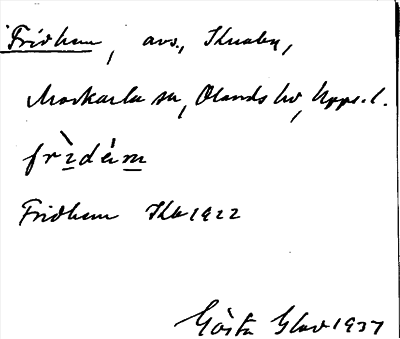 Fridhem, avs., Skuraby,
Morkarla sn, Olands hd, Upps. l.
frìdém
Fridhem Ska 1922
Gösta Glad 1937